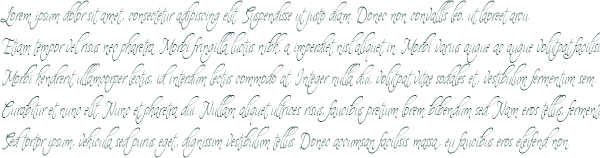 Lorem ipsum dolor sit amet, consectetur adipiscing elit. Suspendisse ut justo diam. Donec non convallis leo, ut laoreet arcu.
Etiam tempor vel risus nec pharetra. Morbi fringilla luctus nibh, a imperdiet nisl aliquet in. Morbi varius augue ac augue volutpat facilisis
Morbi hendrerit ullamcorper lectus, id interdum lectus commodo at. Integer nulla dui, volutpat vitae sodales et, vestibulum fermentum sem.
Curabitur et nunc elit. Nunc et pharetra dui. Nullam aliquet ultrices risus, faucibus pretium lorem bibendum sed. Nam eros tellus, ferment
Sed tortor ipsum, vehicula sed purus eget, dignissim vestibulum tellus. Donec accumsan facilisis massa, eu faucibus eros eleifend non.